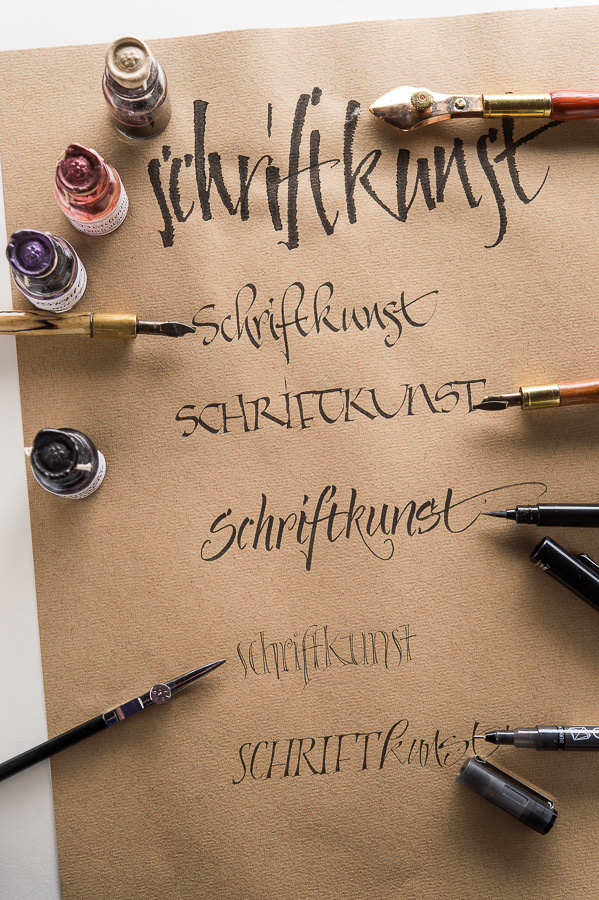 schriftkunst
Schriftkunst
SCHRIFTKUNST
Schriftkunst
schriftkunst
SCHRIFTkunst